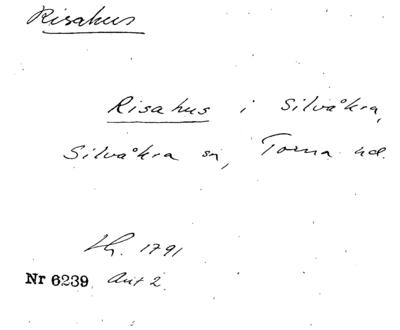 Risahus
Risahus i Silvåkra,
Silvåkra sn, Torna hd.
Hg. 1791
Nr 6239 Akt 2.